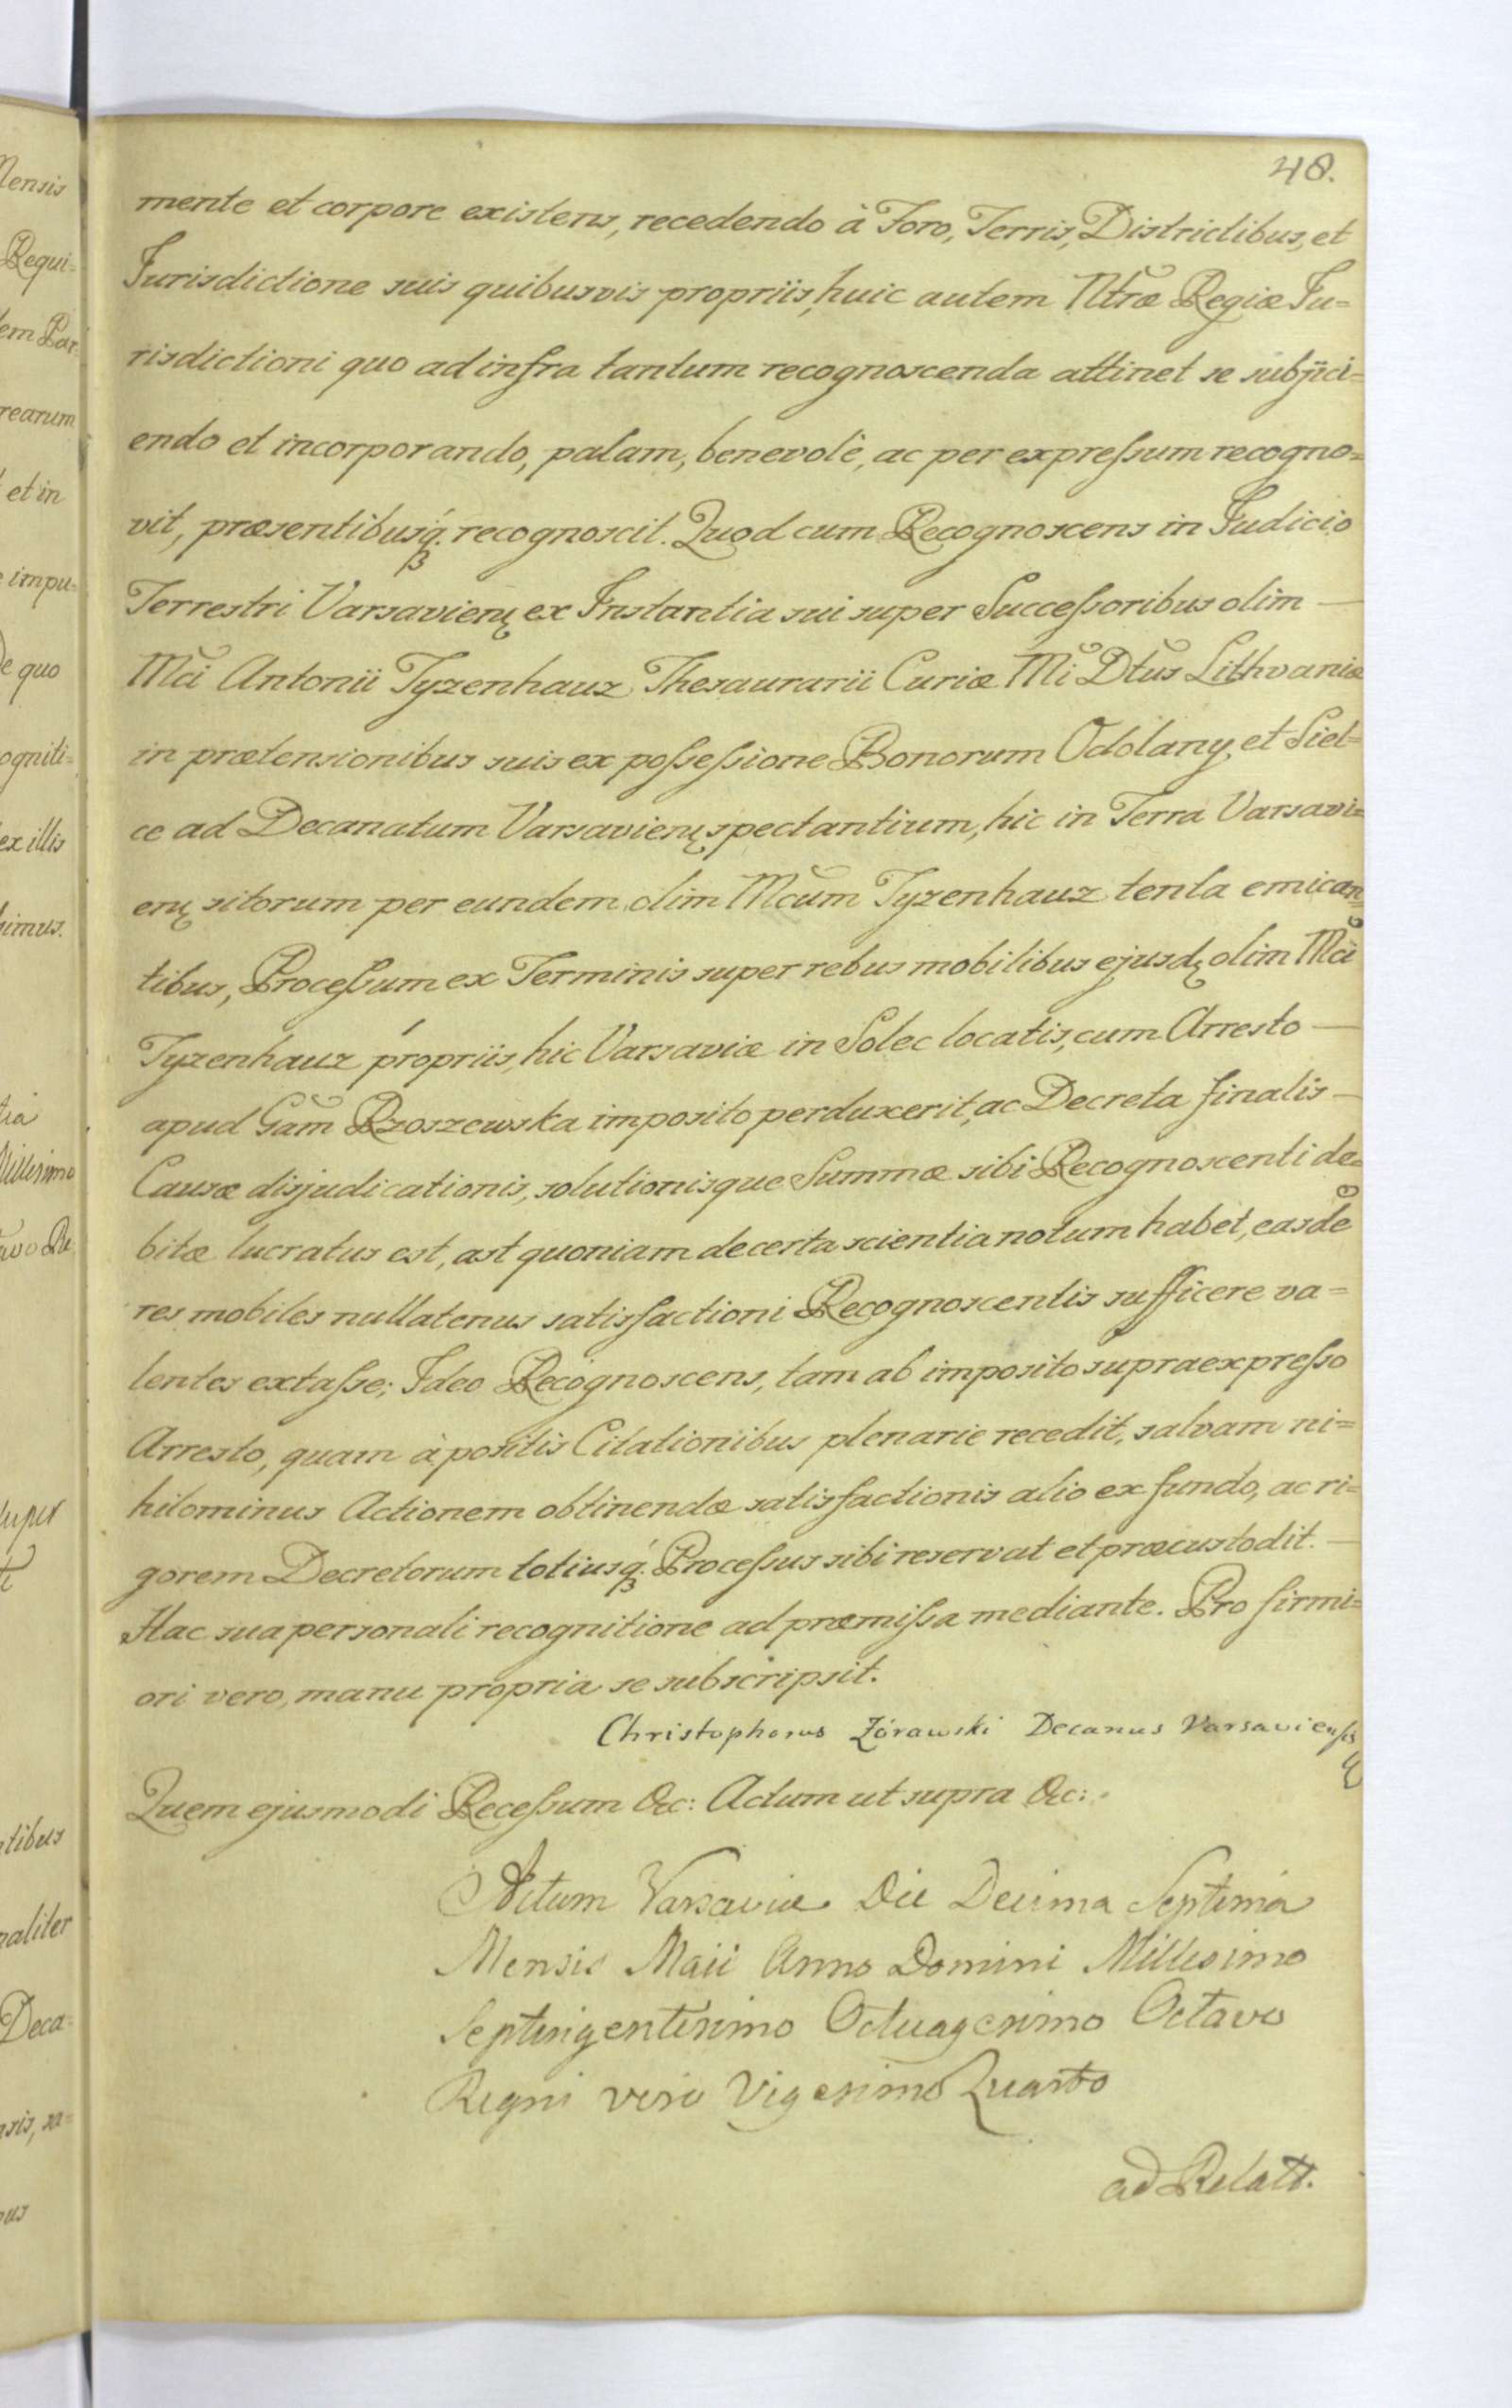 48.
mente et corpore existens, recedendo à Foro, Terris, Districtibus, et
Jurisdictione suis quibusvis propriis, huic autem Ntræ Regiæ Ju=
risdictioni quo ad infra tantum recognoscenda attinet se subjici=
endo et incorporando, palam, benevolè, ac per expressum recogno=
vit, præsentibusq́ꝫ recognoscit. Quod cum Recognoscens in Judicio
Terrestri Varsavienꝫ ex Instantia sui super Successoribus olim —
Mci Antonii Tyzenhauz Thesaurarii Curiæ Mi Dtus Lithvaniæ
in prætensionibus suis ex possessione Bonorum Odolany, et Siel=
ce ad Decanatum Varsavienꝫ spectantium, hic in Terra Varsavi=
enꝫ sitorum per eundem olim Mcum Tyzenhauz tenta emican=
tibus, Processum ex Terminis super rebus mobilibus ejusdꝫ olim Mci
Tyzenhauz propriis, hic Varsaviæ in Solec locatis, cum Arresto —
apud Gam Rzoszewska imposito perduxerit, ac Decreta finalis —
Causæ disjudicationis, solutionisque Summæ sibi Recognoscenti de=
bitæ lucratus est, ast quoniam de certa scientia notum habet, easde
res mobiles nullatenus satisfactioni Recognoscentis sufficere va=
lentes extasse; Ideo Recognoscens, tam ab imposito supraexpresso
Arresto, quam à positis Citationibus plenarie recedit, salvam ni=
hilominus Actionem obtinendæ satisfactionis alio ex fundo, ac ri=
gorem Decretorum totiusq́ꝫ Processus sibi reservat et præcustodit. —
Hac sua personali recognitione ad præmissa mediante. Pro firmi=
ori vero, manu propria se subscripsit.
Christophorus Zórawski Decanus Varsaviensis
Quem ejusmodi Recessum &c: Actum ut supra &c:
Actum Varsaviæ Die Decima Septima
Mensis Maii Anno Domini Millesimo
Septingentesimo Octuagesimo Octavo
Regni vero Vigesimo Quarto
ad Relatt.